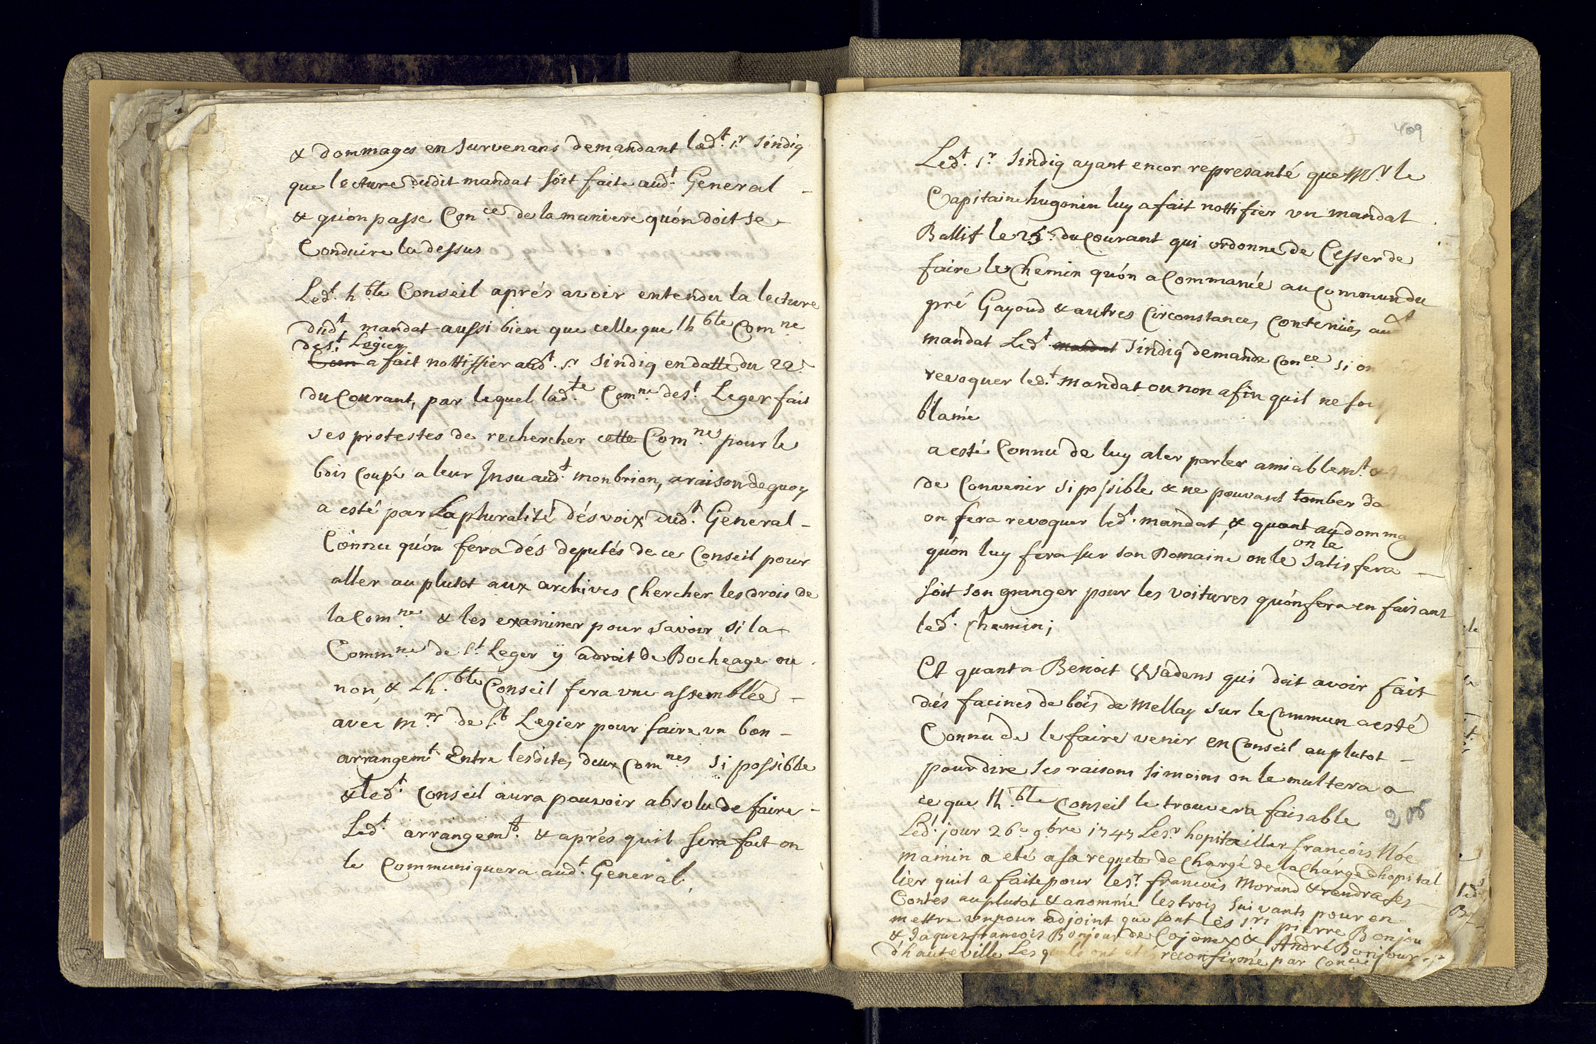 & dommages en survenans demandant lad.t s.r sindiq
que lecture dudit mandat soit faite aud.t General
& qu'on passe Con.ce de la maniere qu'on doit se
Conduire la dessus
Led.t h.ble Conseil aprés avoir entendu la lecture
dud.t mandat aussi bien que celle que lh.ble Com.ne
de s.t Legier
a fait nottiffier aud.t s.r sindiq en datte du 22.e
du Courant, par lequel lad.te Com.ne de s.t Leger fait
ses protestes de rechercher cette Com.ne pour le
bois coupé a leur Insu aud.t monbrion, a raison dequoy
a esté par La pluralité dés voix dud.t General
Connu qu'on fera dés deputés de ce Conseil pour
aller au plutot aux archives Chercher les drois de
la Com.ne & les examiner pour savoir si la
Comm.ne de s.t Leger ÿ a droit de Bocheage ou
non, & Lh.ble Conseil fera une assemblée
avec m.rs de s.t Legier pour faire un bon
arrangem.t Entre lesdites deux Com.nes si possible
& led.t Conseil aura pouvoir absolu de faire
Led.t arrangem.t & aprés quil sera fait on
le Communiquera aud.t General,
409
Led.t s.r sindiq ayant encor represanté que Mr le
Capitaine hugonin luy a fait nottifier un mandat
Ballif le 25.e du Courant qui ordonne de Cesser de
faire le Chemin qu'on a Commancé au Commun du
pré Gayoud & autres Circonstances contenües aud.t
mandat Led.t mandat sindiq demande con.ce si on
revoquer led.t mandat ou non afin quil ne soi
blamé
a esté Connu de luy aler parler amiablem.t &
de Convenir si possible & ne pouvant tomber da
on fera revoquer led.t mandat, & quant au domma
on le
qu'on luy fera sur son Domaine on le satisfera
soit son granger pour les voitures qu'on fera en faisant
led.t Chemin;
Et quant a Benoit Wadens qui doit avoir fait
dés facines de bois de Mellay sur le Commun a esté
Connu de le faire venir en Conseil au plutot
pour dire ses raisons si moins on le multera a
ce que lh.ble Conseil le trouvera faisable
206
Led.t jour 26.e 9bre 1747 Le s.r hopitailler françois Nóe
mamin a eté a sa requete de chargé de la charge dhopital
lier quil a faite pour le s.r francois Morand & rendra ses
Contes au plutot & a nommé les trois suivants pour en
mettre un pour adjoint que sont Lés s.rs pierre Bonjou
& Jaques francois Bonjour de Cojonnex & André Bonjour
d'hauteville Lesq ont reconfirmé par Con.ce